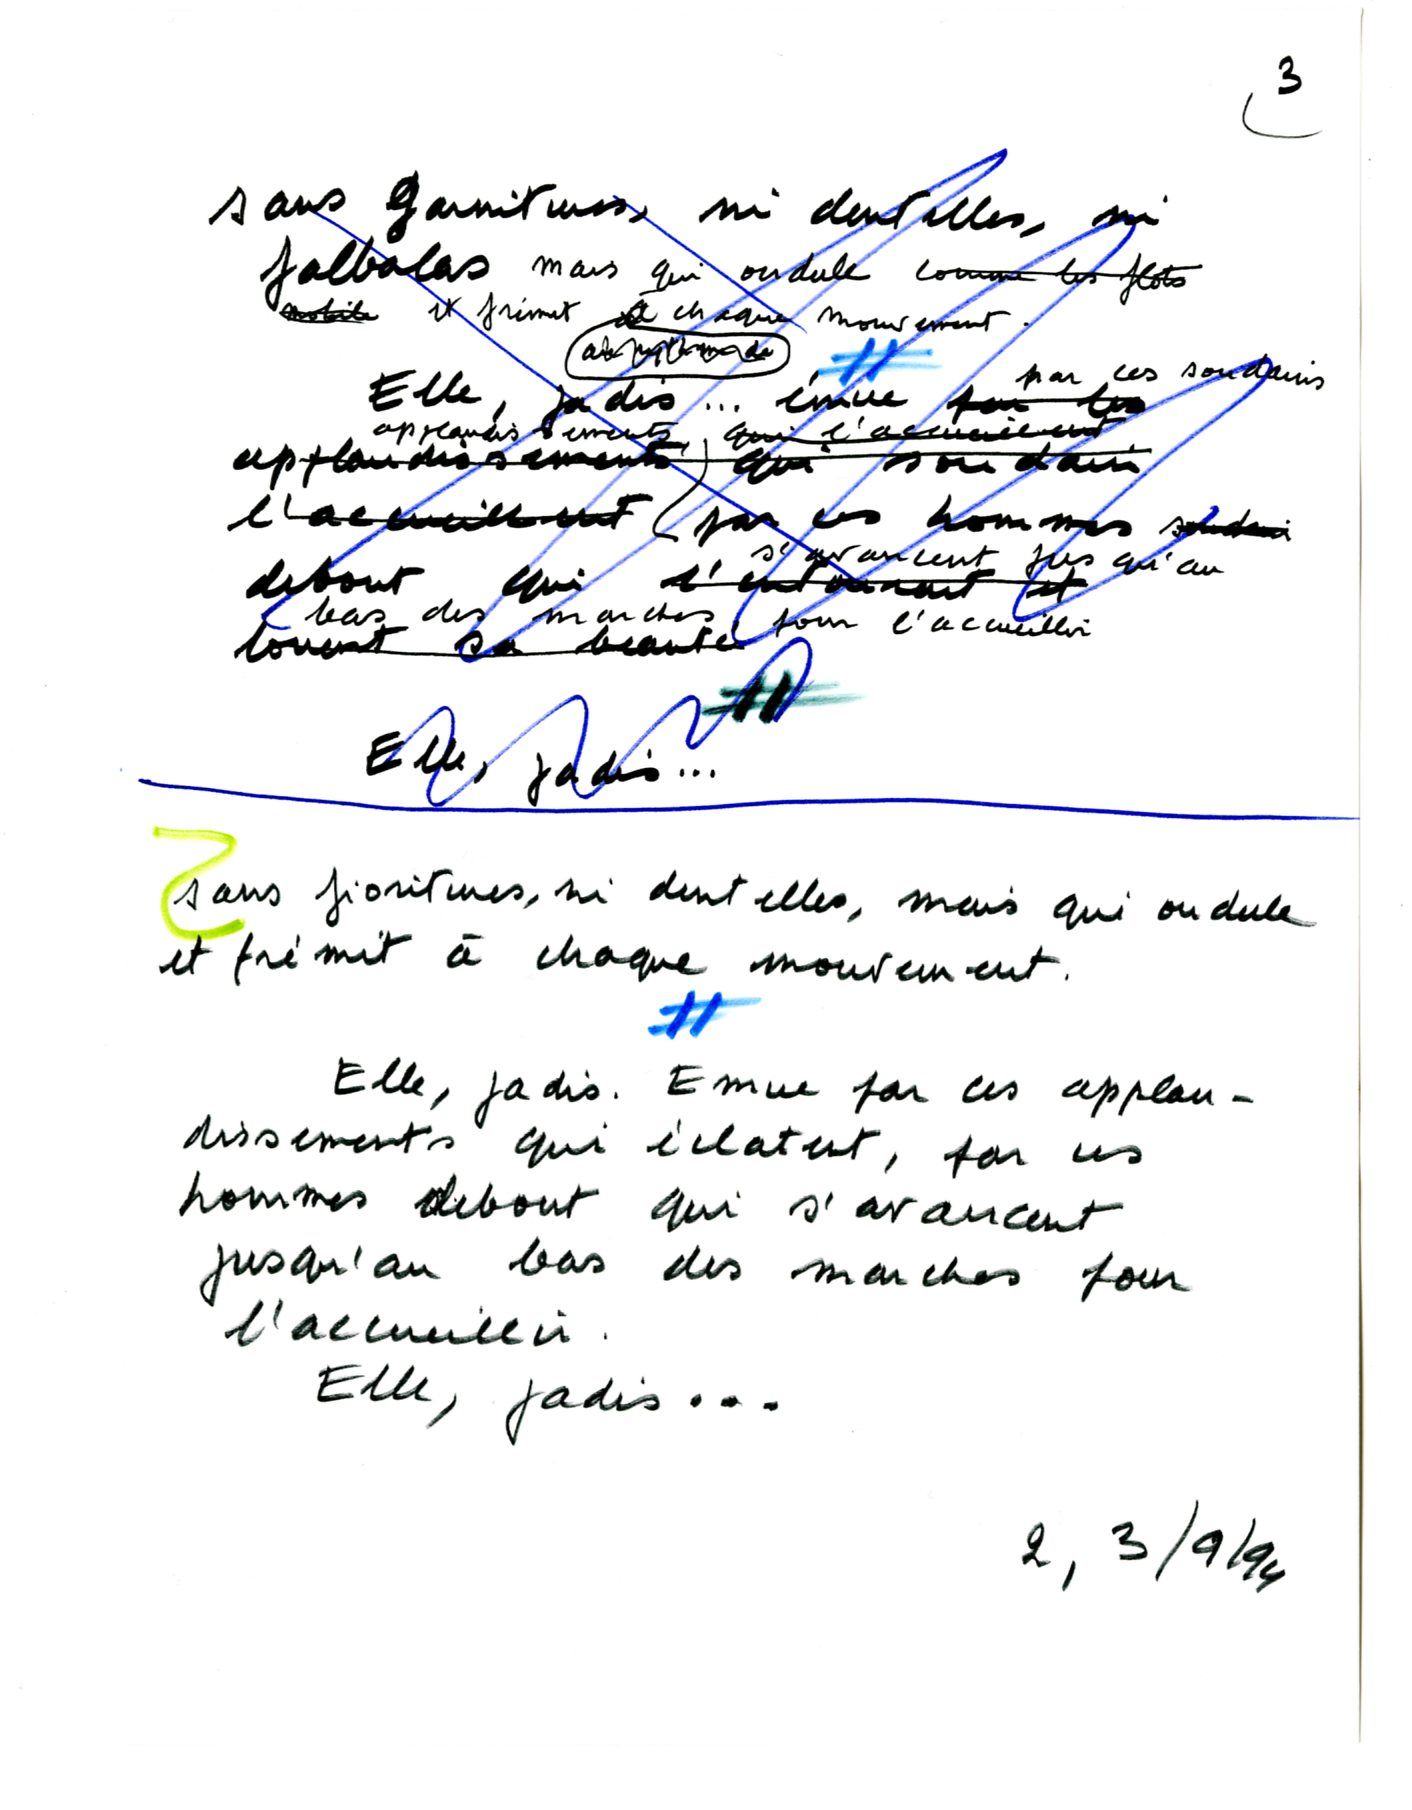 3
sans garnitures, ni dentelles, ni
falbalas mais qui ondule comme les flots
mobile et frémit à chaque mouvement.
Elle, jadis... émue par les par ces soudains
applaudissements, qui l'accueillent
applaudissements qui soudain
l'accueillent par ces hommes soudain
s'avancent jusqu'au
debout qui l'entourent et
bas des marches pour l'accueillir
louent sa beauté
Elle, jadis...
sans fioritures, ni dentelles, mais qui ondule
et frémit à chaque mouvement.
Elle, jadis. Emue par ces applau-
dissements qui éclatent, par ces
hommes debout qui s'avancent
jusqu'au bas des marches pour
l'accueillir.
Elle, jadis...
2, 3/9/94